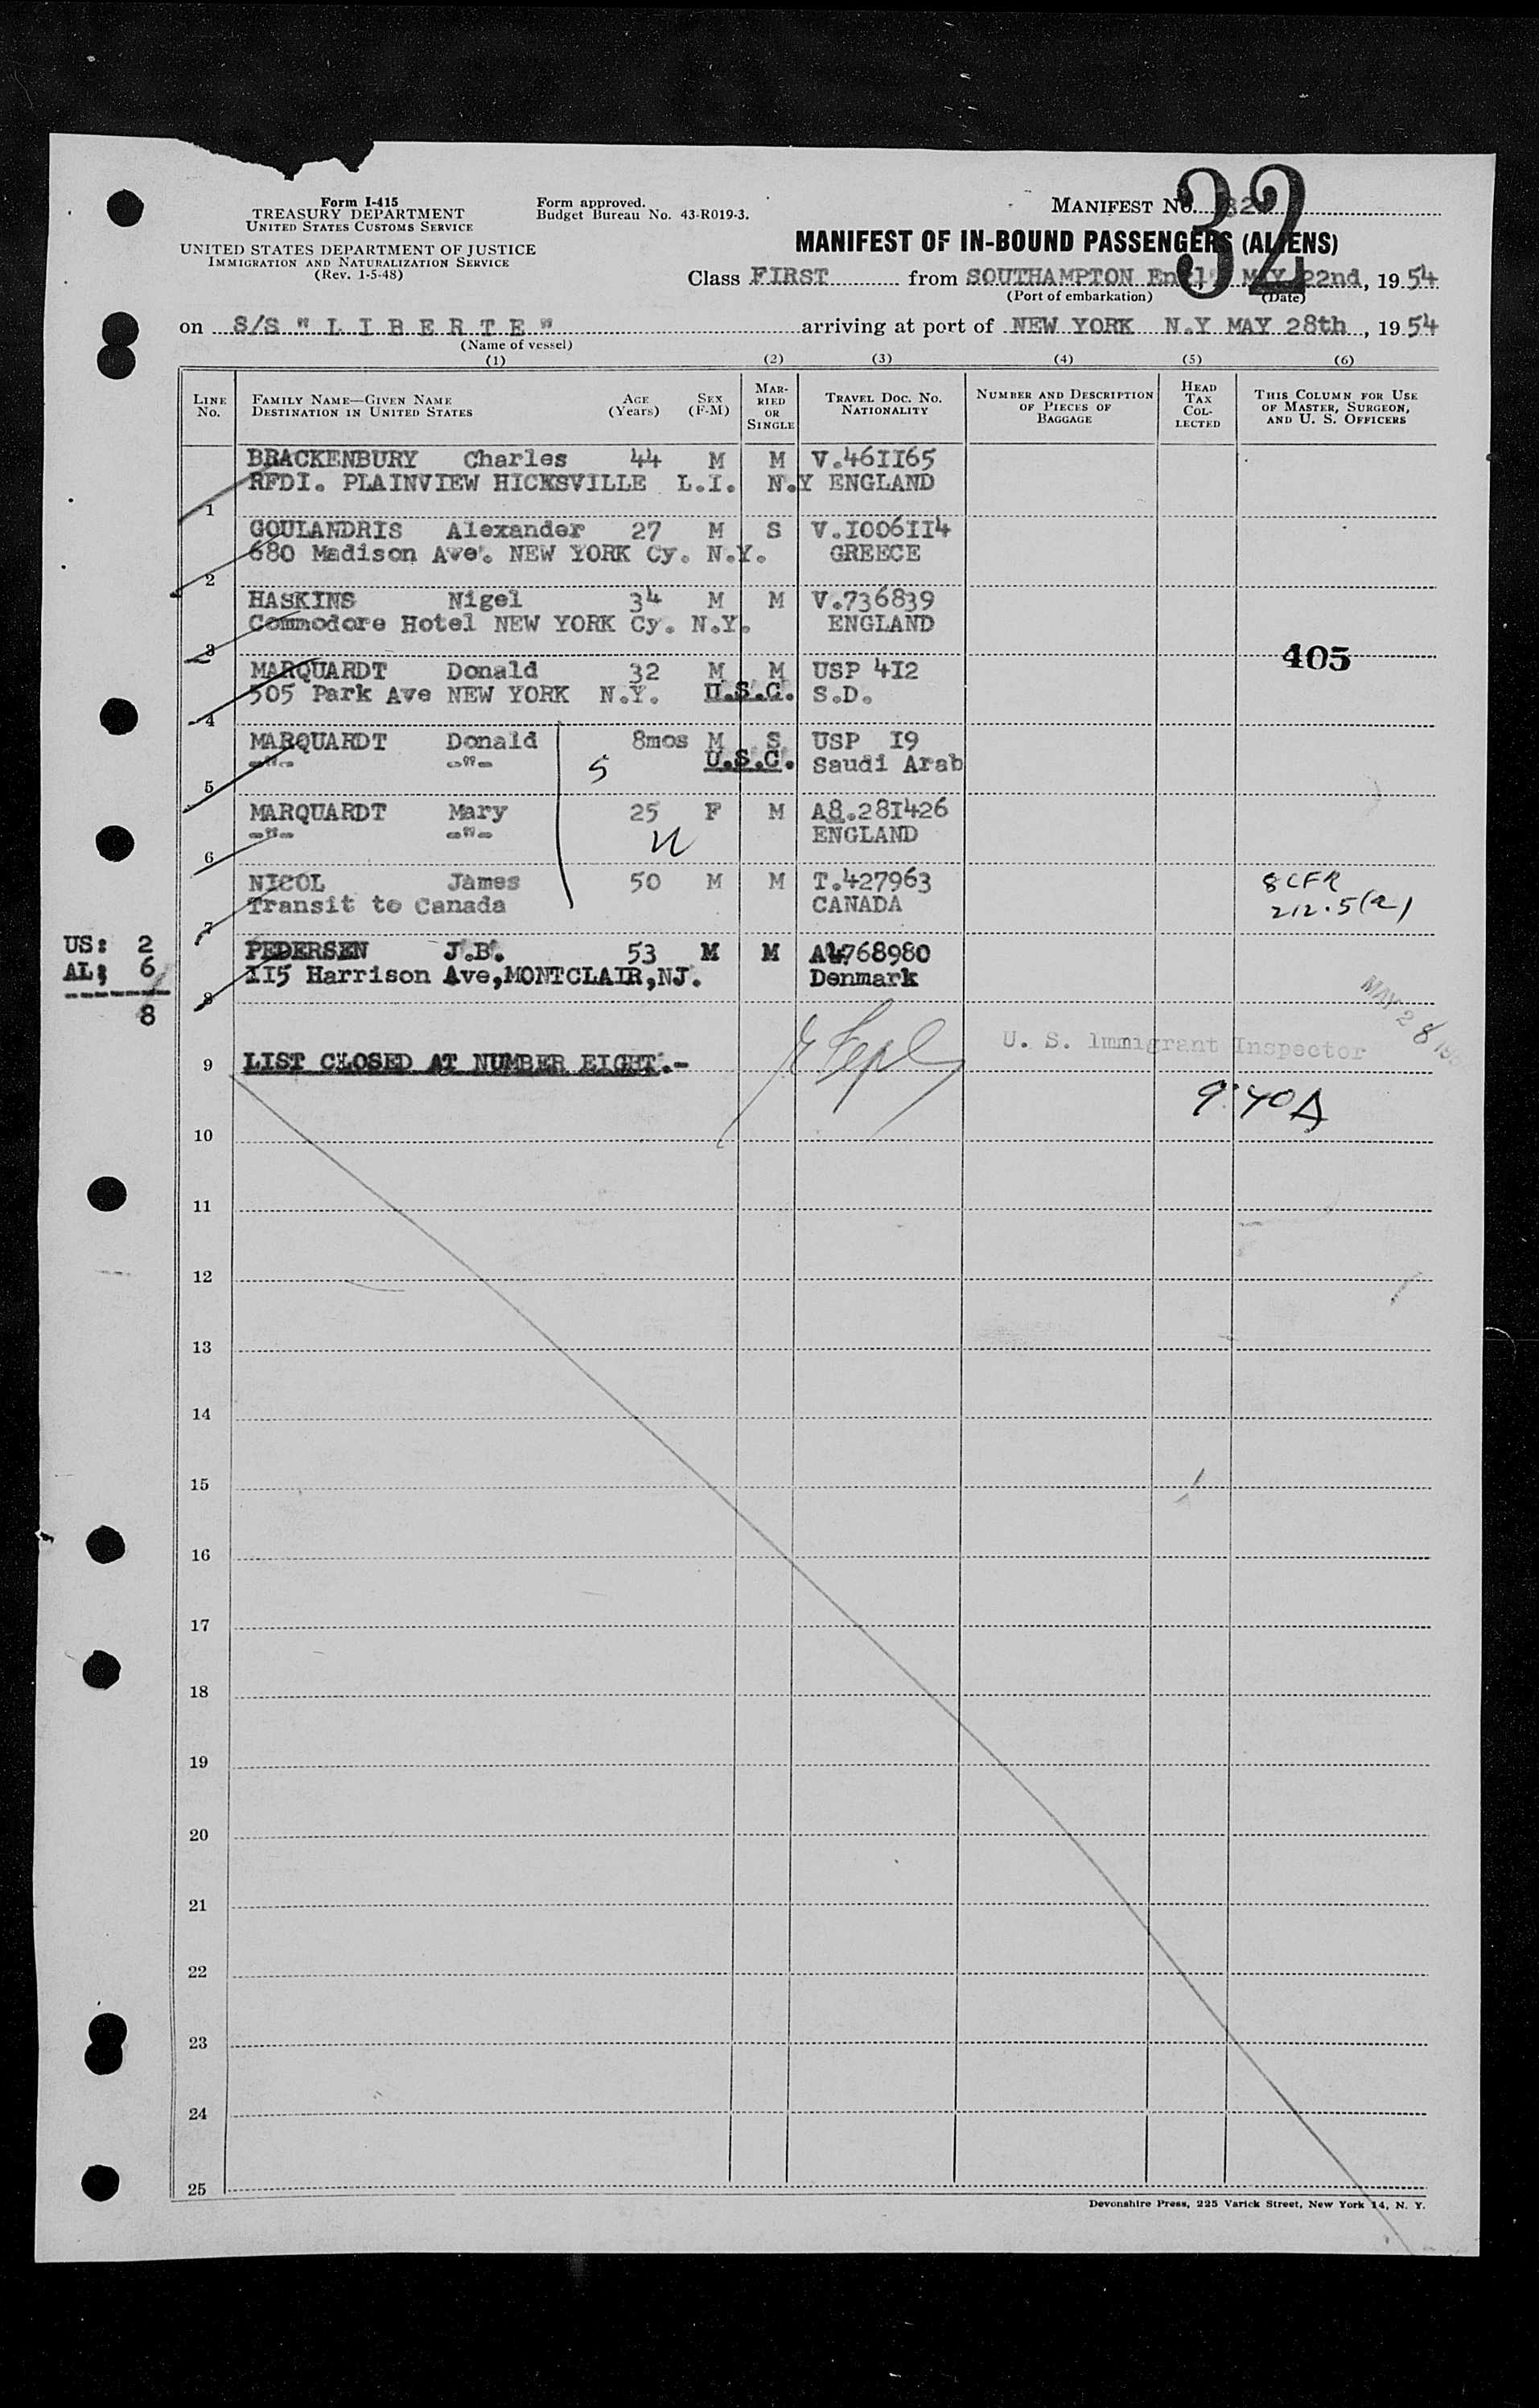 32
Form I-415
TREASURY DEPARTMENT
UNITED STATES CUSTOMS SERVICE
UNITED STATES DEPARTMENT OF JUSTICE
IMMIGRATION AND NATURALIZATION SERVICE
(Rev. 1-5-48)
Form approved.
Budget Bureau No. 43-R019-3.
MANIFEST No. 32
MANIFEST OF IN-BOUND PASSENGERS (ALIENS)
Class FIRST from SOUTHAMPTON MAY 22nd, 1954
(Port of embarkation) (Date)
on S/S "LIBERTE" arriving at port of NEW YORK N.Y MAY 28th, 1954
(Name of vessel)
(1) (2) (3) (4) (5) (6)
LINE No.
FAMILY NAME—GIVEN NAME
DESTINATION IN UNITED STATES
AGE (Years)
SEX (F-M)
MARRIED OR SINGLE
TRAVEL DOC. NO. NATIONALITY
NUMBER AND DESCRIPTION OF PIECES OF BAGGAGE
HEAD TAX COLLECTED
THIS COLUMN FOR USE OF MASTER, SURGEON, AND U. S. OFFICERS
BRACKENBURY Charles 44 M M V.461165
RFDI. PLAINVIEW HICKSVILLE L.I. N.Y ENGLAND
1
GOULANDRIS Alexander 27 M S V.1006114
680 Madison Ave. NEW YORK Cy. N.Y. GREECE
2
HASKINS Nigel 34 M M V.736839
Commodore Hotel NEW YORK Cy. N.Y. ENGLAND
3
405
MARQUARDT Donald 32 M M USP 412
505 Park Ave NEW YORK N.Y. U.S.C. S.D.
4
MARQUARDT Donald 8mos M S USP 19
-"- -"- 5 U.S.C. Saudi Arab
5
MARQUARDT Mary 25 F M A8.281426
-"- -"- ENGLAND
6
NICOL James 50 M M T.427963 8 CFR
Transit to Canada CANADA 212.5(a)
7
US: 2
AL: 6
8
PEDERSEN J.B. 53 M M A4768980
115 Harrison Ave,MONTCLAIR,NJ. Denmark
8
MAY 28
U. S. Immigrant Inspector
9 LIST CLOSED AT NUMBER EIGHT.-
9:40A
10
11
12
13
14
15
16
17
18
19
20
21
22
23
24
25
Devonshire Press, 225 Varick Street, New York 14, N. Y.